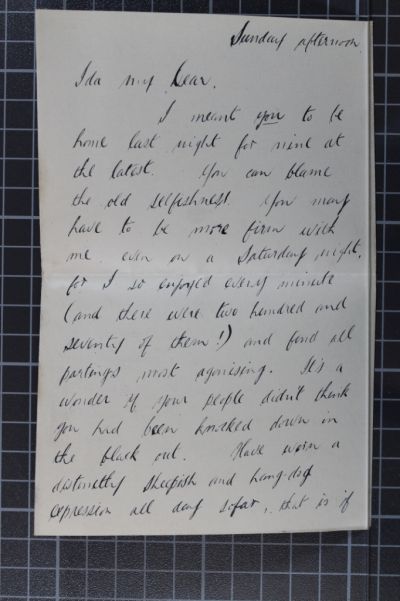 Sunday afternoon
Ida my Dear,
I meant you to be
home last night for nine at
the latest. You can blame
the old selfishness. You may
have to be more firm with
me even on a Saturday night,
for I so enjoyed every minute
(and there were two hundred and
seventy of them!) and find all
partings most agonising. It's a
wonder if your people didn't think
you had been knocked down in
the black out. Have worn a
distinctly sheepish and hang-dog
expression all day sofar, that is if